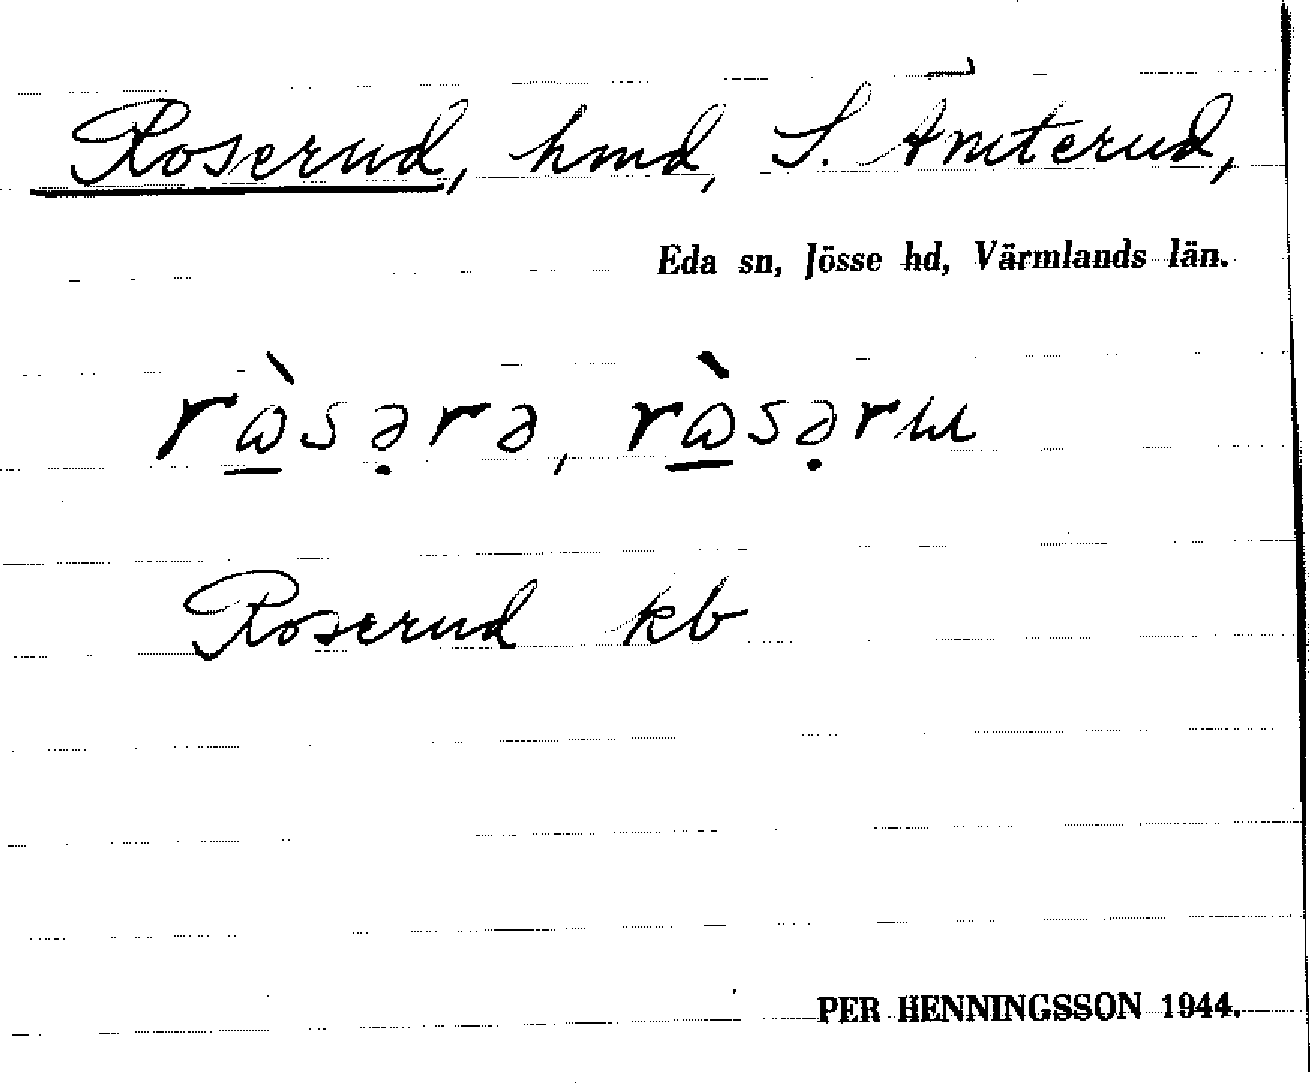 Roserud, hmd, S. Åmterud,
Eda sn, Jösse hd, Värmlands län.
rɷ̱̀sə̣rə, rɷ̱̀sə̣rɯ
Roserud kb
PER HENNINGSSON 1944.